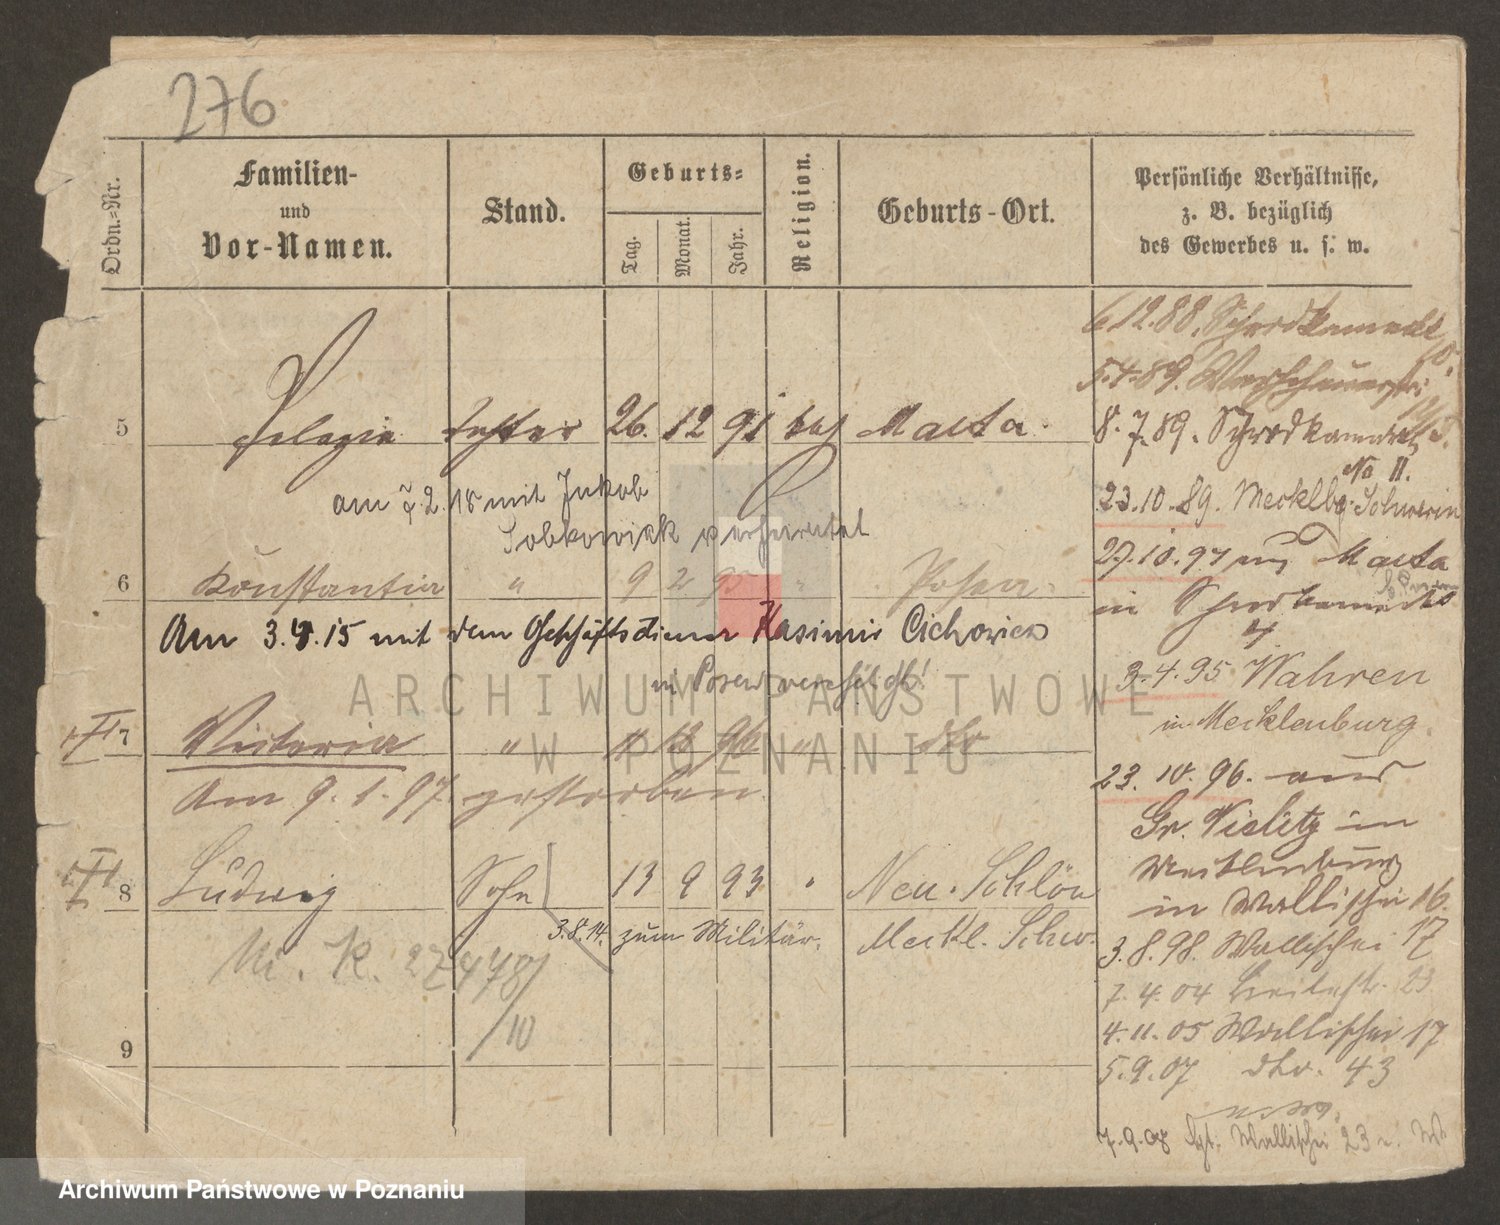 276
Ordn.-Nr.
Familien-
und
Vor-Namen.
Stand.
Geburts-
Tag.
Monat.
Jahr.
Religion.
Geburts-Ort.
Persönliche Verhältnisse,
z. B. bezüglich
des Gewerbes u. s. w.
5 Pelagie Tochter 26. 12 91 kath Malta.
am 2. 18 mit Jakob
Sobkowiak verheiratet
6 Konstantia " 9 2 " Posen.
Am 3. 15 mit dem Geschäftsdiener Kasimir Cichowicz
in Posen verehel.
7 Victoria " 96 " dto
Am 9. 1. 97. gestorben
8 Ludwig Sohn 13 9 93 " Neu-Schlön
3.8.14. zum Militär. Meckl. Schw.
27478/
/10
9
6 12.88. Schrodkamarkt
5.4.89.
8.7.89. Schrodkamarkt
No 11.
23.10.89. Mecklbg-Schwerin
27.10.94 aus Malta
in Schrodkamarkt
4
3.4.95 Wahren
in Mecklenburg.
23.10.96. aus
Gr. Vielitz in
Mecklenburg
in Wallischei 16.
3.8.98. Wallischei 17
7.4.04 Breitestr. 23
4.11.05 Wallischei 17
5.9.07 dto. 43
7.9.08 Wallischei 23
ARCHIWUM PAŃSTWOWE
W POZNANIU
Archiwum Państwowe w Poznaniu